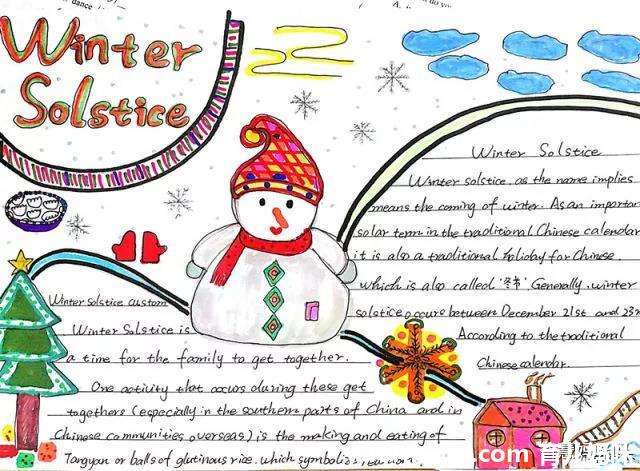 Winter
Solstice
Winter Solstice
Winter solstice, as the name implies
means the coming of winter. As an importan
solar term in the traditional Chinese calendar
it is also a traditional holiday for Chinese.
which is also called '冬节'. Generally, winter
solstice occurs between December 21st and 23rd
According to the traditional
Chinese calendar.
Winter Solstice custom
Winter Solstice is
a time for the family to get together.
One activity that occurs during these get
togethers (especially in the southern parts of China and in
Chinese communities overseas) is the making and eating of
Tangyan or balls of glutinous rice, which symbolize
.com